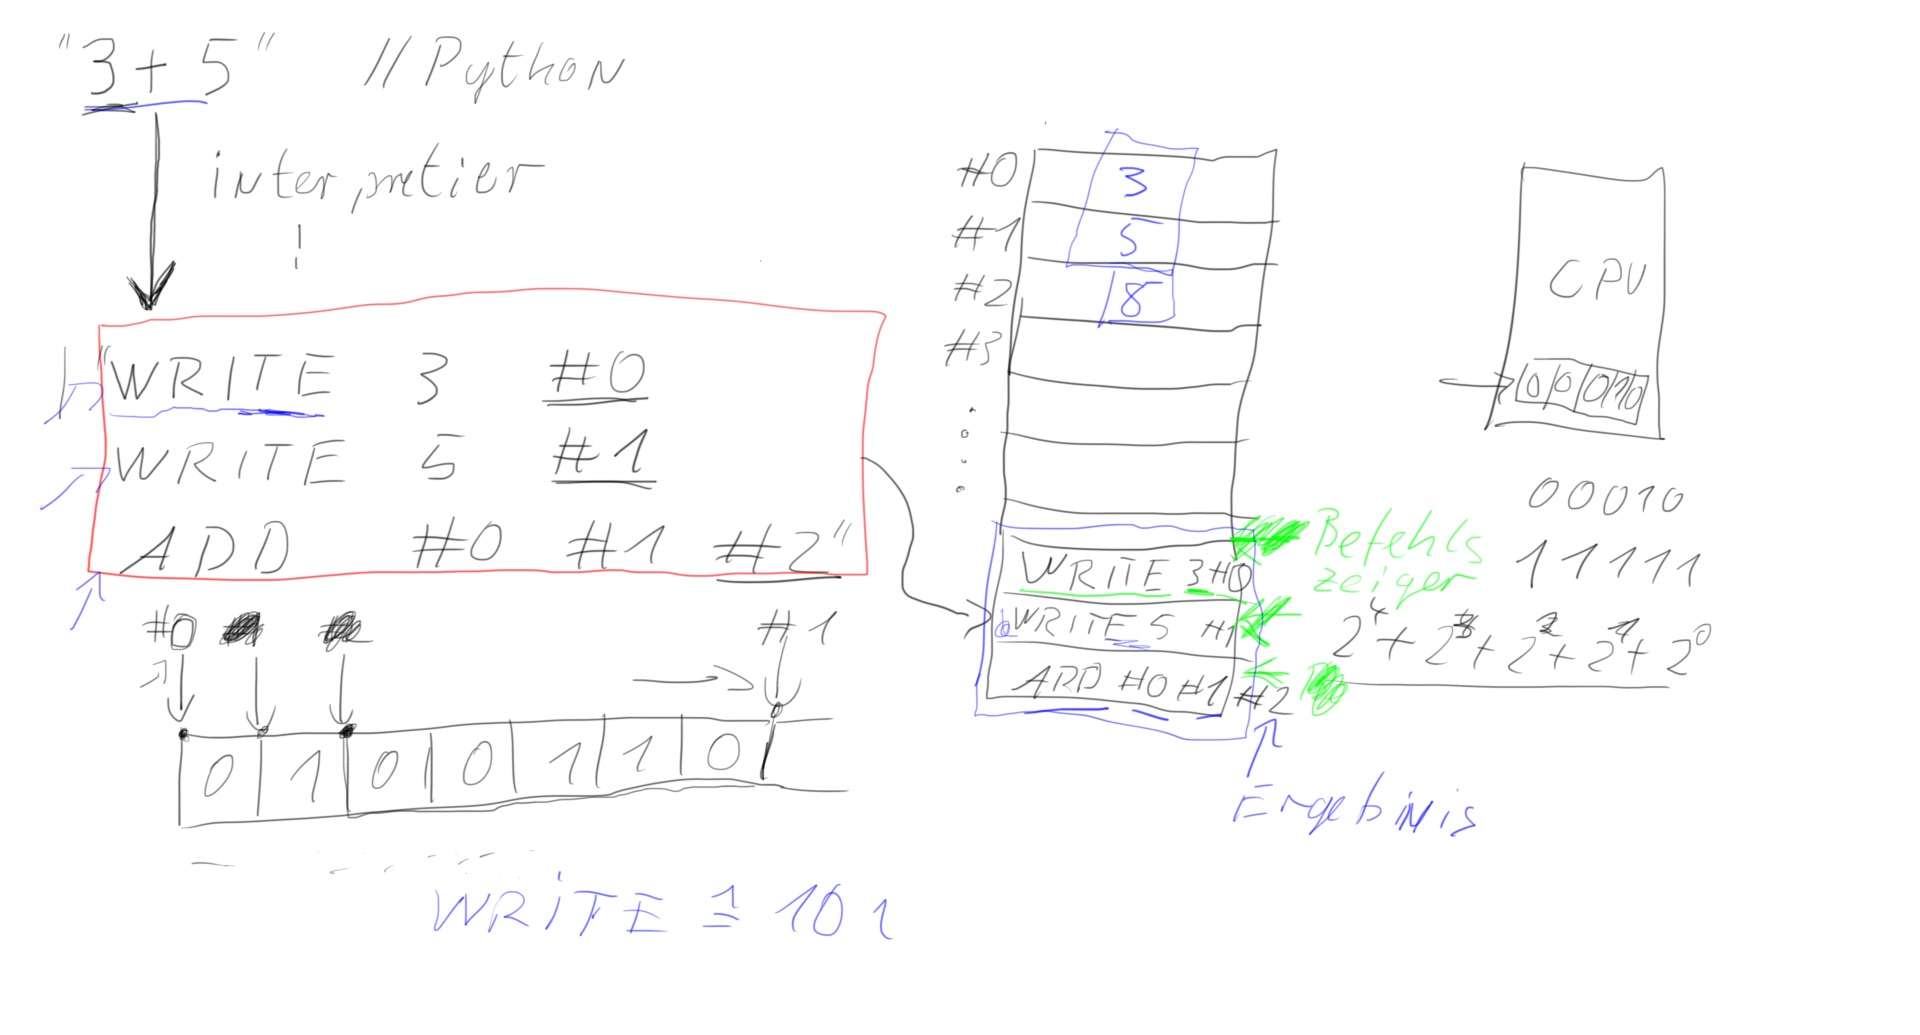 "3+5" // Python
interpretier
"WRITE 3 #0
WRITE 5 #1
ADD #0 #1 #2"
#0 #1
0 1 0 0 1 1 0
WRITE ≙ 101
#0 3
#1 5
#2 8
#3
WRITE 3 #0
WRITE 5 #1
ADD #0 #1 #2
Befehls
zeiger
Ergebinis
CPU
0 0 0 1 0
00010
11111
2⁴ + 2³ + 2² + 2¹ + 2⁰